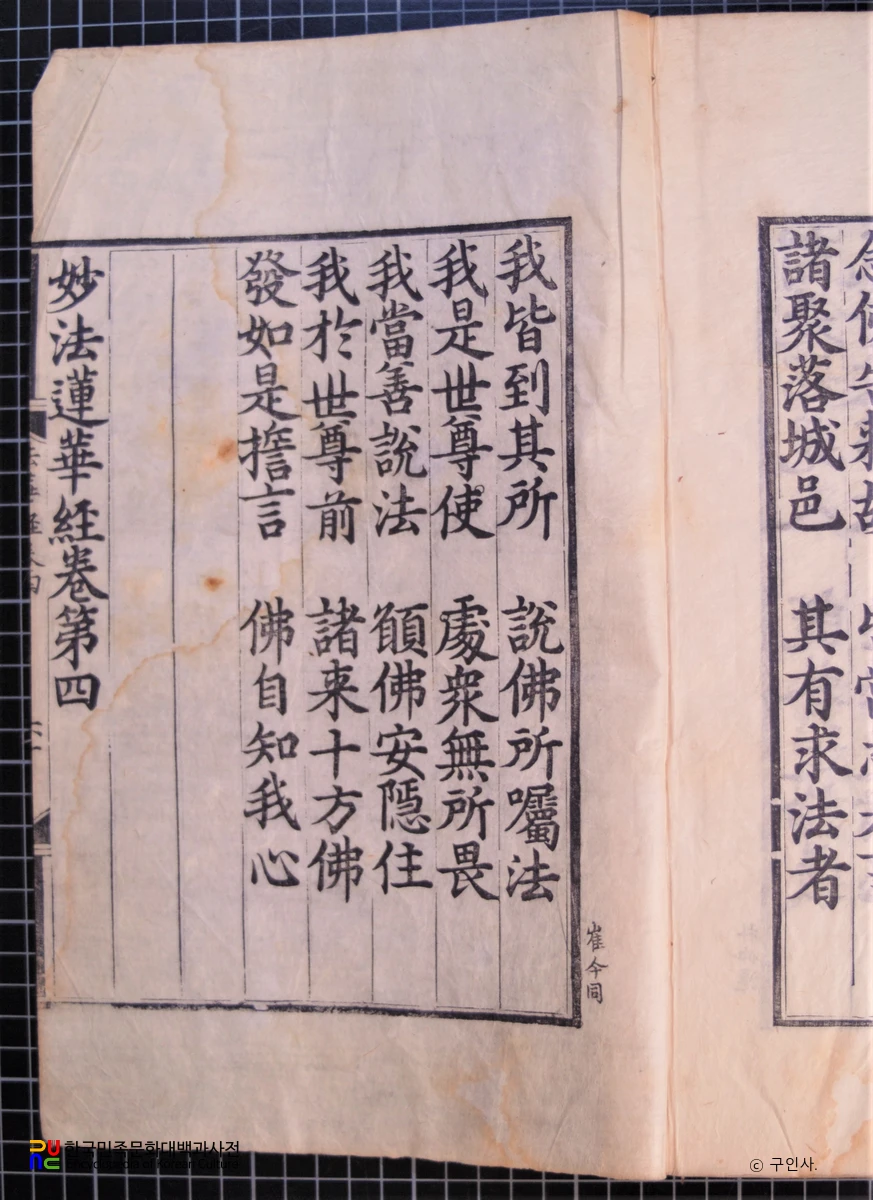 諸聚落城邑 其有求法者
我皆到其所 說佛所囑法
我是世尊使 處衆無所畏
我當善說法 願佛安隱住
我於世尊前 諸来十方佛
發如是擔言 佛自知我心
妙法蓮華経卷第四
崔今同
한국민족문화대백과사전
Encyclopedia of Korean Culture
© 구인사.